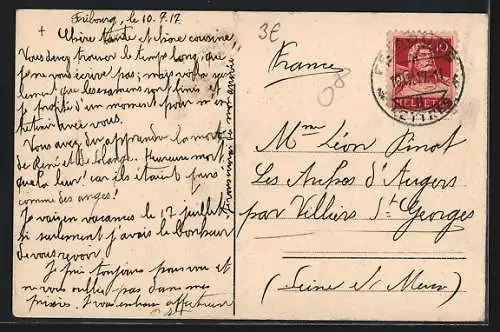 Fribourg, le 10.7.17
+
Chère tante et chère cousine,
Vous devez trouver le temps long, que
je ne vous écrive pas; mais voilà
seulement que les examens sont finis et
je profite d'un moment pour m'en
tretenir avec vous.
Vous avez dû apprendre la mort
de René et de Solange. Heureuse mort
que la leur! car ils étaient purs
comme des anges!
Je vais en vacances le 17 juillet
si seulement j'avais le bonheur
de vous revoir.
Je prie toujours pour vous et
ne vous oublie pas dans mes
prières. Je vous embrasse affectueus
3€
France
08
HELVETIA
10
Mme Léon Pinot
Les Aulnes d'Augers
par Villiers St Georges
(Seine et Marne)